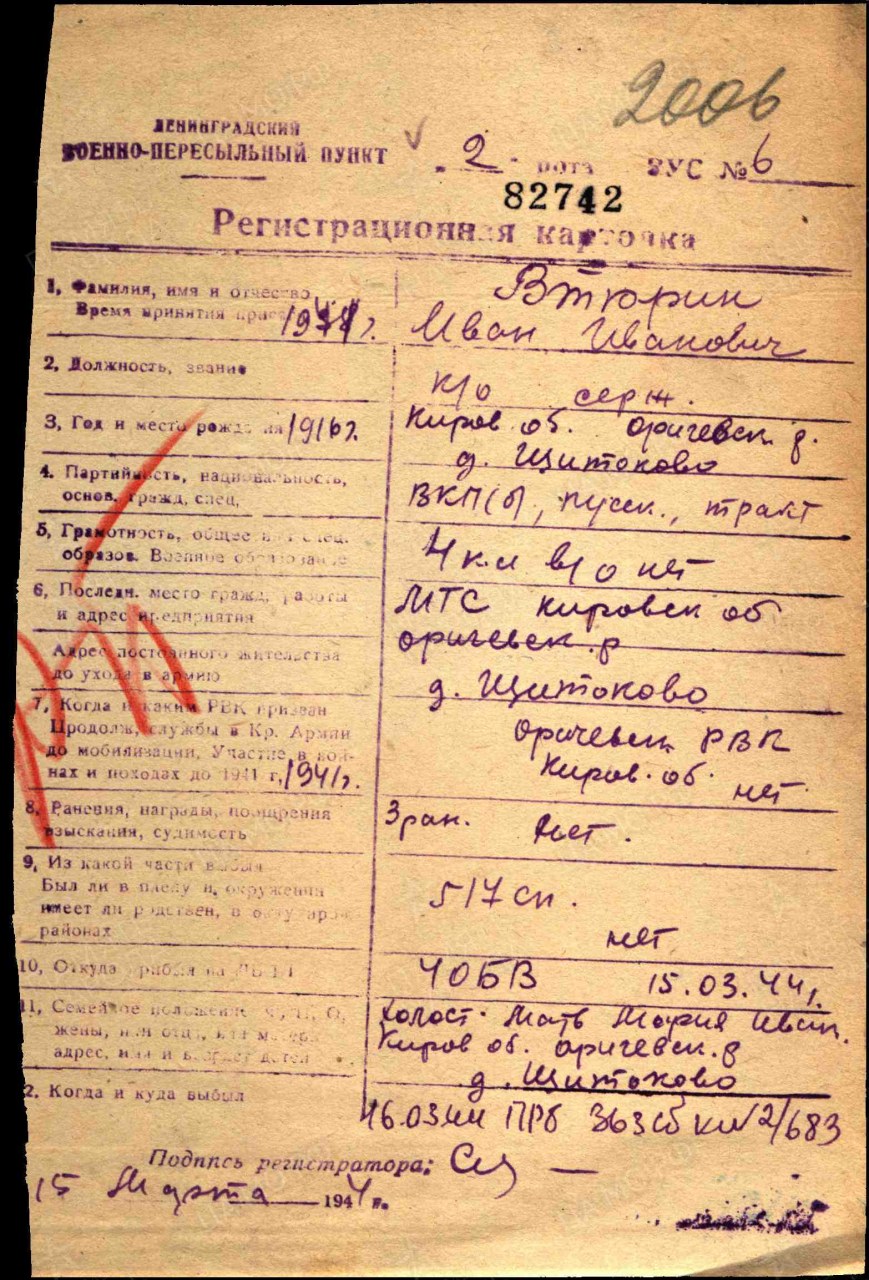 2006
ЛЕНИНГРАДСКИЙ
ВОЕННО-ПЕРЕСЫЛЬНЫЙ ПУНКТ
„2" рота ВУС № 6
82742
Регистрационная карточка
1, Фамилия, имя и отчество
Время принятия 1941 г.
Вторин
Иван Иванович
2, Должность, звание
к/о серж.
3, Год и место рождения 1916 г.
Киров. об. оричевск. р.
д. Щитоково
4. Партийность, национальность,
основ. гражд. спец.
ВКП(б), русск., тракт
5, Грамотность, общее и спец.
образов. Военное образование
4 кл в/о нет
6, Последн. место гражд. работы
и адрес предприятия
МТС кировск об
оричевск. р
Адрес постоянного жительства
до ухода в армию
д. Щитоково
7, Когда и каким РВК призван
Продолж. службы в Кр. Армии
до мобилизации, Участие в вой-
нах и походах до 1941 г. 1941 г.
Оричевск РВК
Киров. об. нет
8, Ранения, награды, поощрения
взыскания, судимость
3 ран. нет.
9, Из какой части выбыл
Был ли в плену и, окружении
имеет ли родствен, в оккупиров
районах
517 сп.
нет
10, Откуда прибыл на ЛВПП
ЧОБВ 15.03.44 г.
11, Семейное положение
жены, или отца, или матери
адрес, имя и возраст детей
холост. Мать Мария Иван.
Киров об. оричевск. р
д. Щитоково
2. Когда и куда выбыл
16.03.44 ПРб 36зсб кн №2/683
Подпись регистратора:
15 Марта 1944 г.